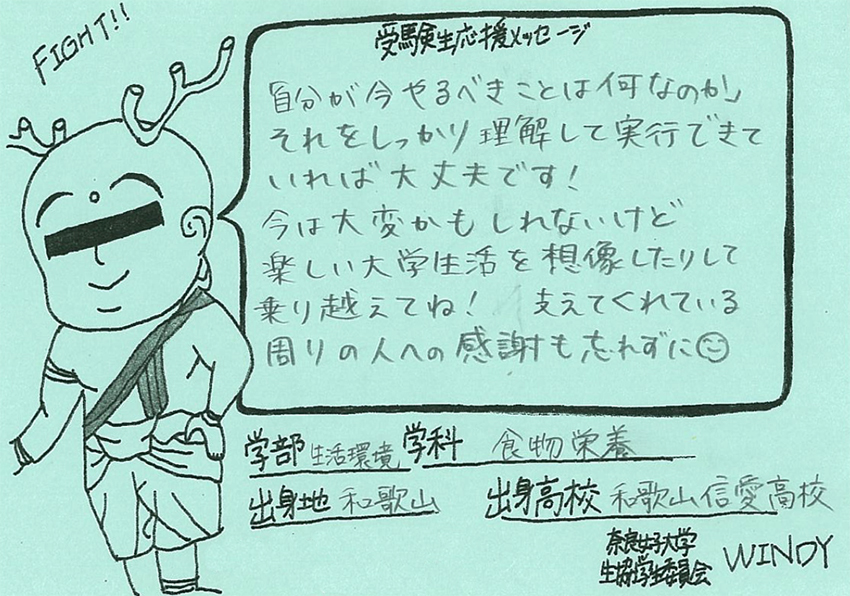 FIGHT!!
受験生応援メッセージ
「自分が今やるべきことは何なのか」
それをしっかり理解して実行できて
いれば大丈夫です!
今は大変かもしれないけど
楽しい大学生活を想像したりして
乗り越えてね! 支えてくれている
周りの人への感謝も忘れずに☺
学部 生活環境 学科 食物栄養
出身地 和歌山 出身高校 和歌山信愛高校
奈良女子大学
生協学生委員会 WINDY